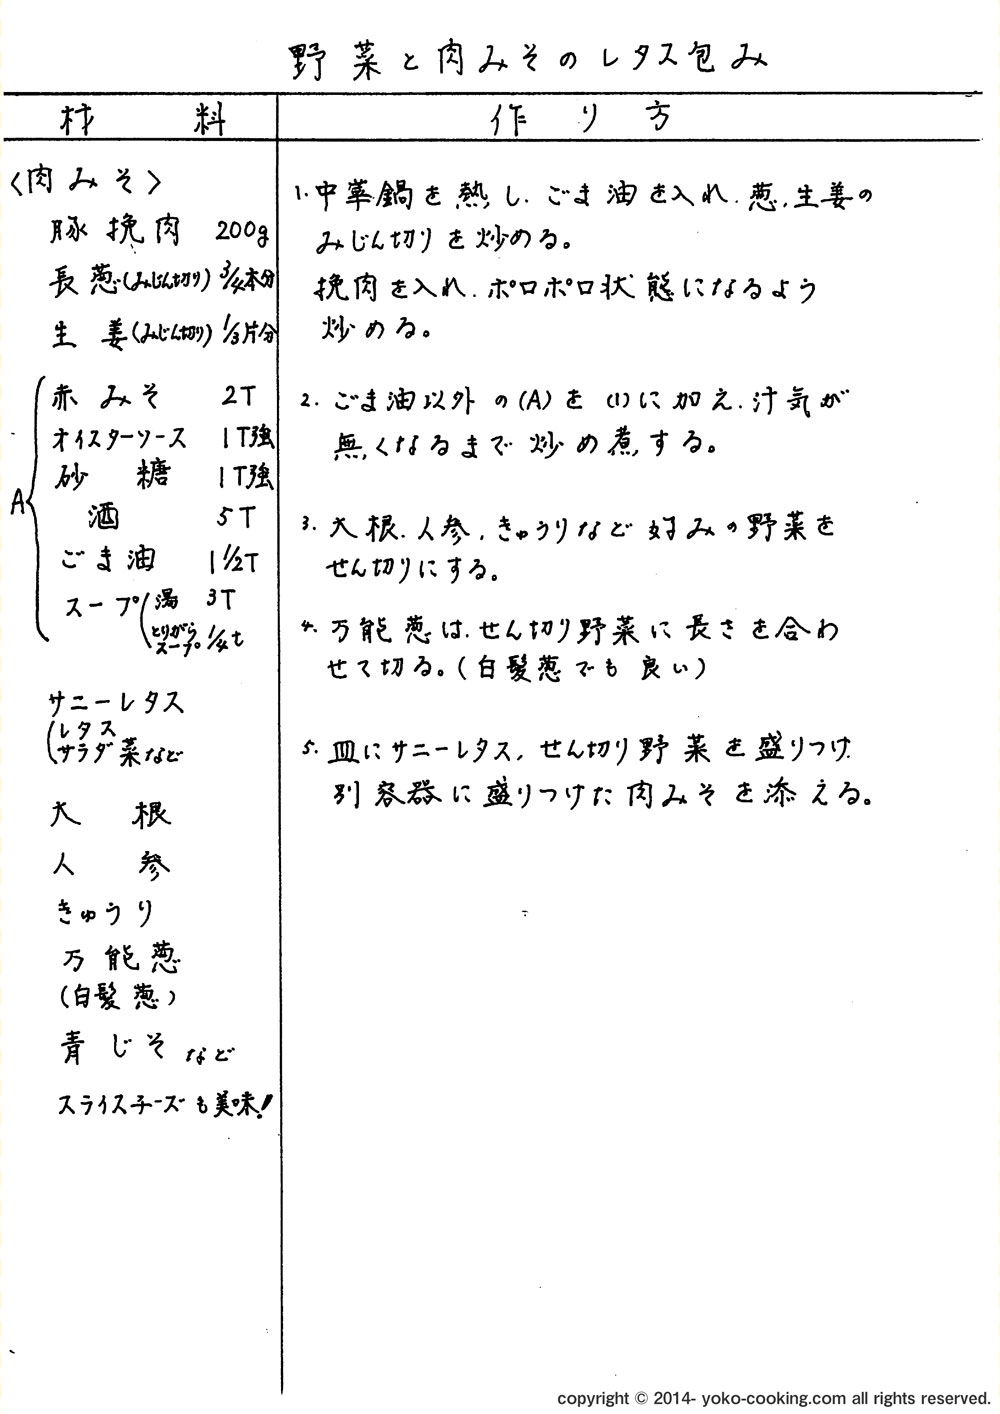 野菜と肉みそのレタス包み
材料
作り方
〈肉みそ〉
豚挽肉 200g
長葱(みじん切り) 3/4本分
生姜(みじん切り) 1/3片分
A
赤みそ 2T
オイスターソース 1T強
砂糖 1T強
酒 5T
ごま油 1 1/2T
スープ(湯 3T
とりがらスープ 1/4t
サニーレタス
(レタス
サラダ菜など
大根
人参
きゅうり
万能葱
(白髪葱)
青じそ など
スライスチーズも美味!
1. 中華鍋を熱し、ごま油を入れ、葱、生姜の
みじん切りを炒める。
挽肉を入れ、ポロポロ状態になるよう
炒める。
2. ごま油以外の(A)を(1)に加え、汁気が
無くなるまで炒め煮する。
3. 大根、人参、きゅうりなど好みの野菜を
せん切りにする。
4. 万能葱は、せん切り野菜に長さを合わ
せて切る。(白髪葱でも良い)
5. 皿にサニーレタス、せん切り野菜を盛りつけ、
別容器に盛りつけた肉みそを添える。
copyright © 2014- yoko-cooking.com all rights reserved.